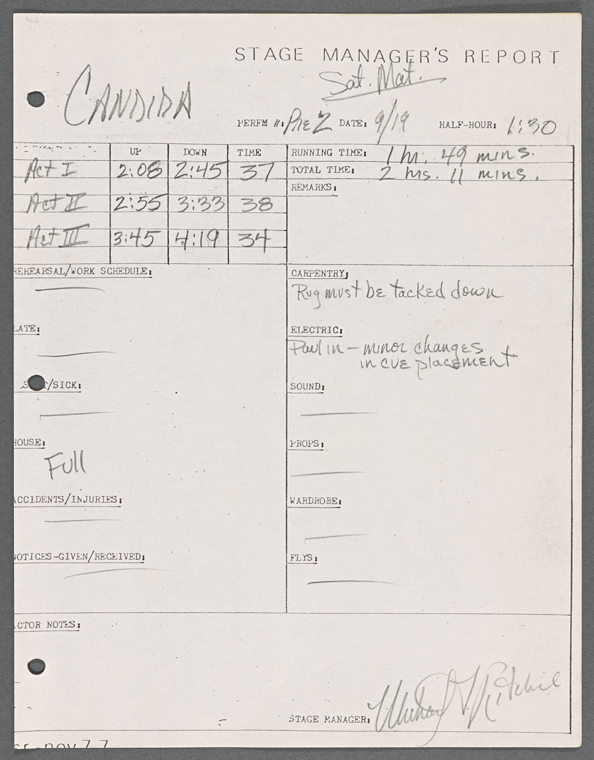 STAGE MANAGER'S REPORT
Sat. Mat.
CANDIDA
PERFM #: Pre 2 DATE: 9/19 HALF-HOUR: 1:30
UP DOWN TIME
Act I 2:08 2:45 37
Act II 2:55 3:33 38
Act III 3:45 4:19 34
RUNNING TIME: 1 hr. 49 mins.
TOTAL TIME: 2 hrs. 11 mins.
REMARKS:
REHEARSAL/WORK SCHEDULE:
LATE:
/SICK:
HOUSE:
Full
ACCIDENTS/INJURIES:
NOTICES-GIVEN/RECEIVED:
CARPENTRY:
Rug must be tacked down
ELECTRIC:
Paul in — minor changes
in cue placement
SOUND:
PROPS:
WARDROBE:
FLYS:
ACTOR NOTES:
STAGE MANAGER: Michael F. Ritchie